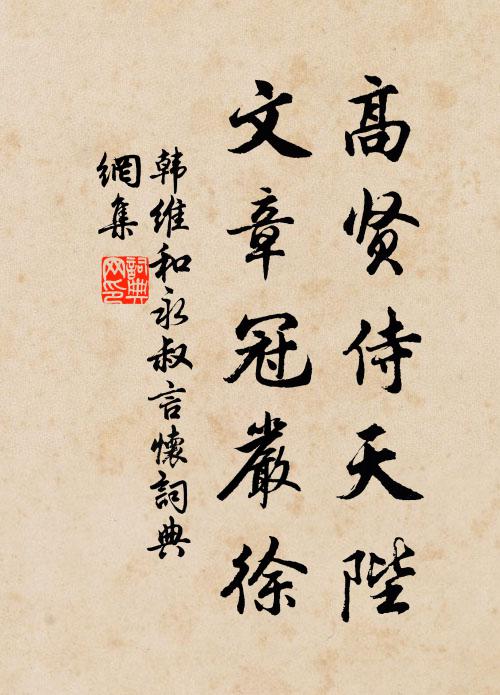 高贤侍天陛
文章冠嚴徐
韩维和永叔言懷詞典
網集
詞典
网印